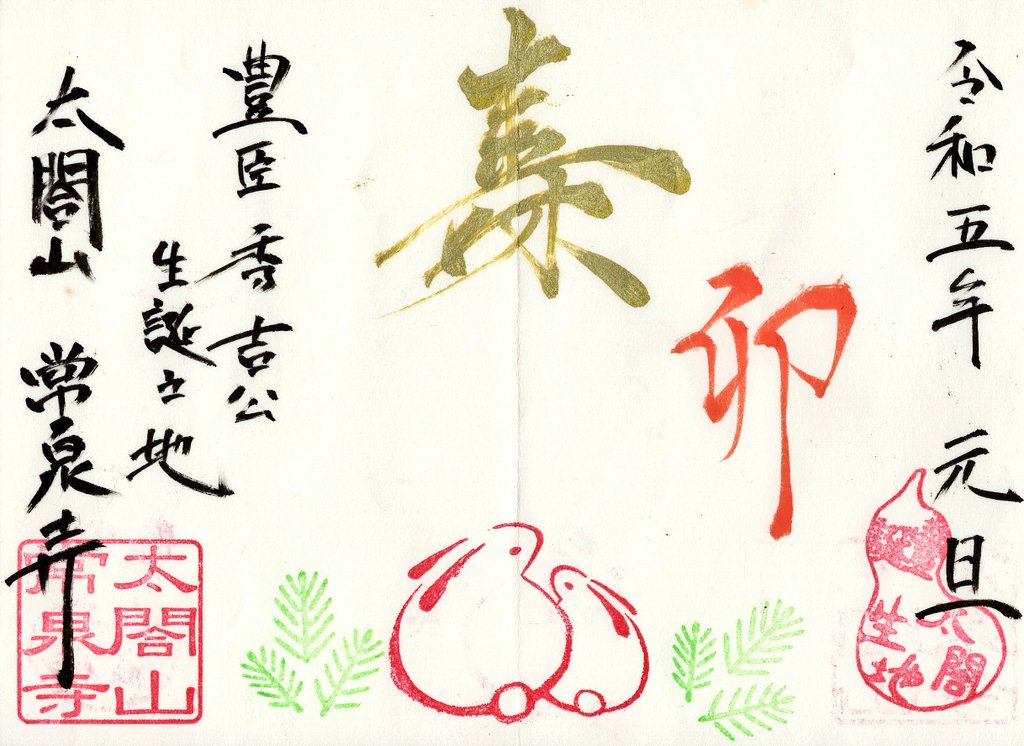 令和五年 元旦
卯
寿
豊臣秀吉公
生誕之地
太閤山 常泉寺
太閤
生地
太閤山
常泉寺